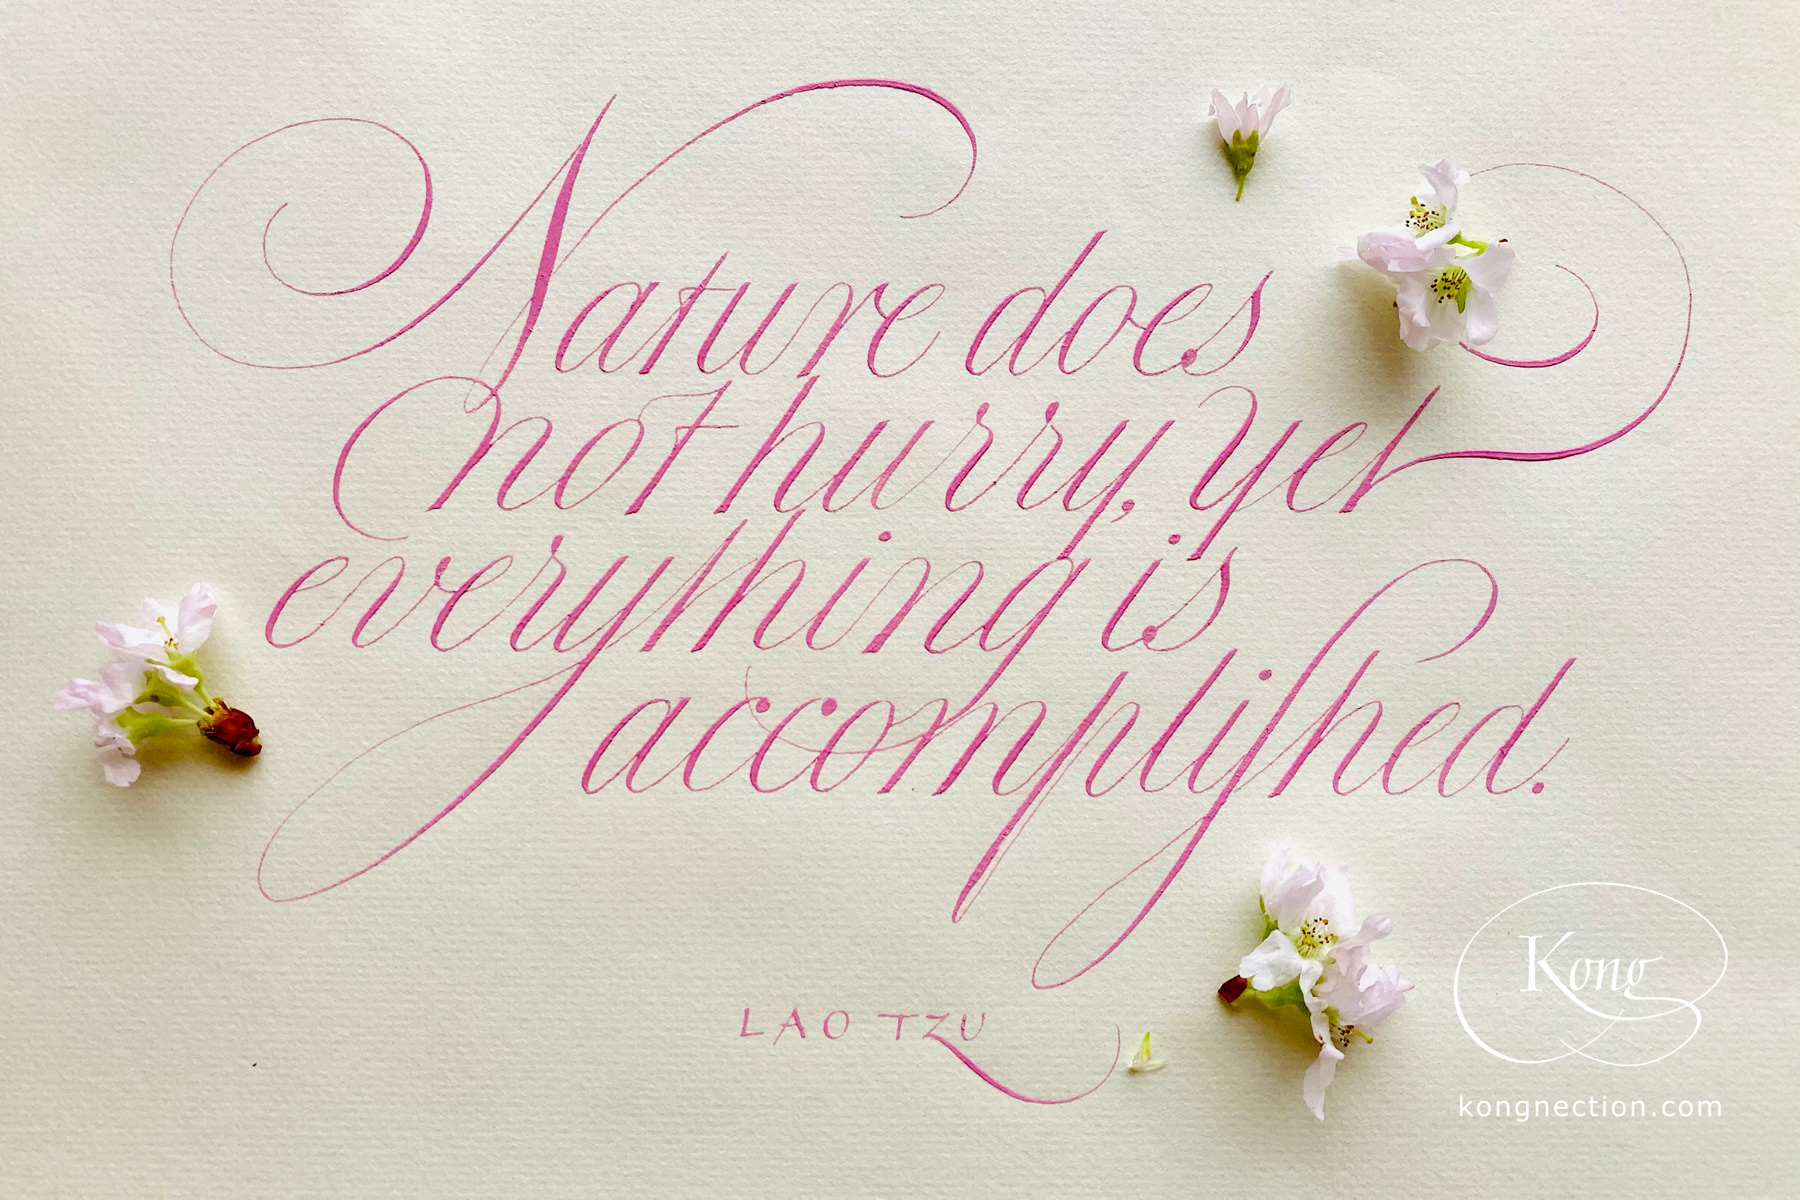 Nature does
not hurry, yet
everything is
accomplished.
LAO TZU
Kong
kongnection.com